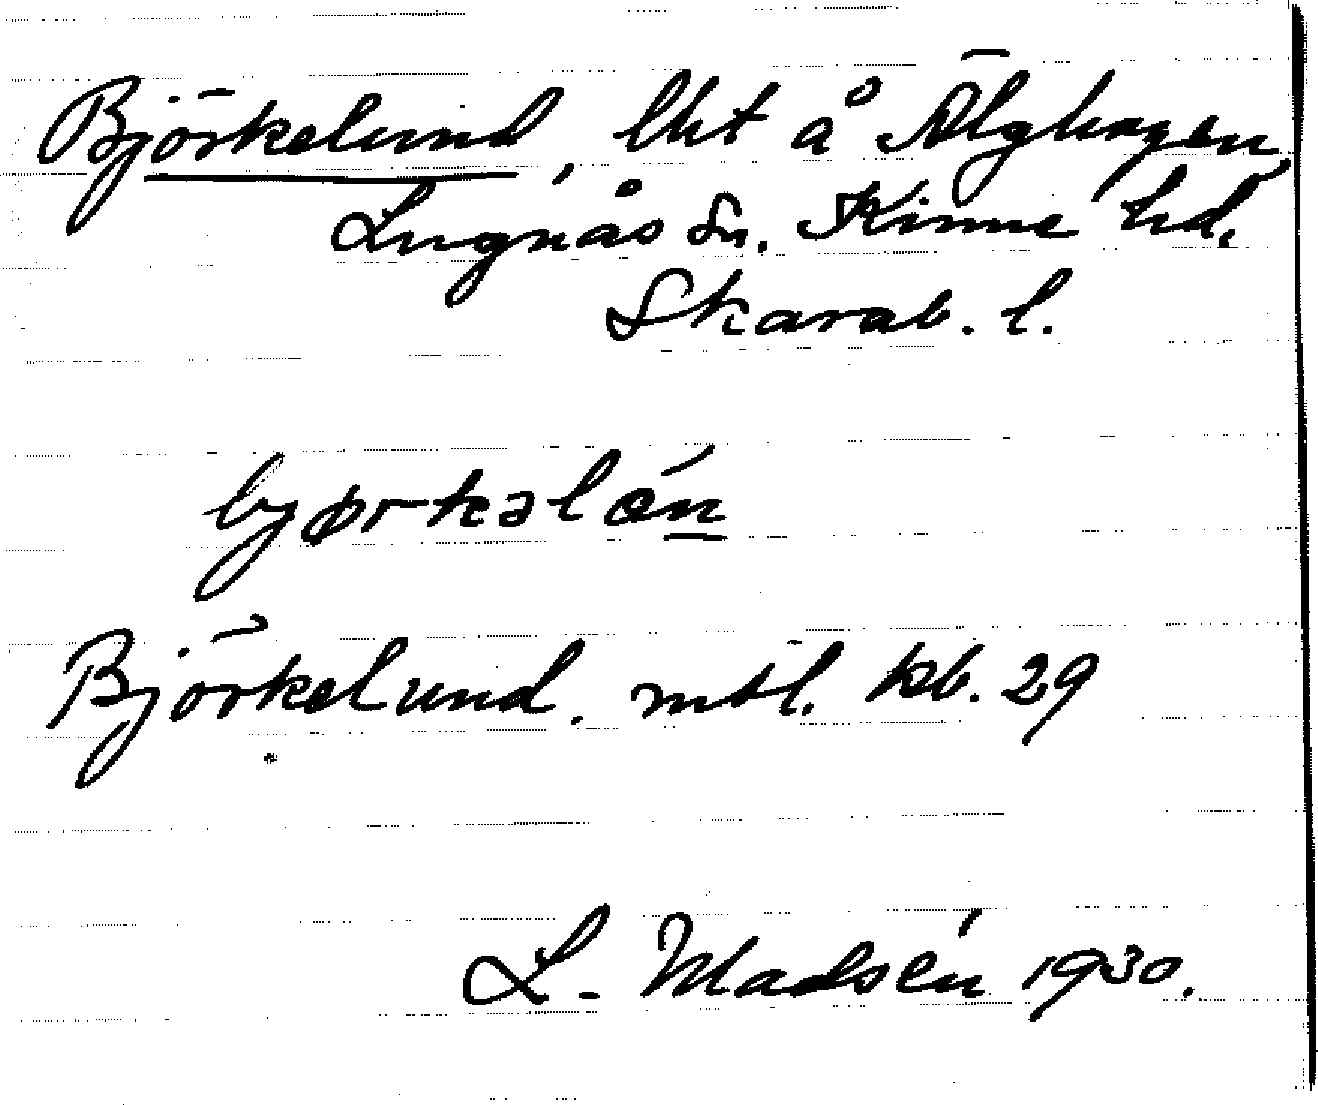 Björkelund, lht å Älghagen,
Lugnås sn. Kinne hd.
Skarab. l.
bjørkəlán
Björkelund. mtl. kb. 29
L. Madsén 1930.